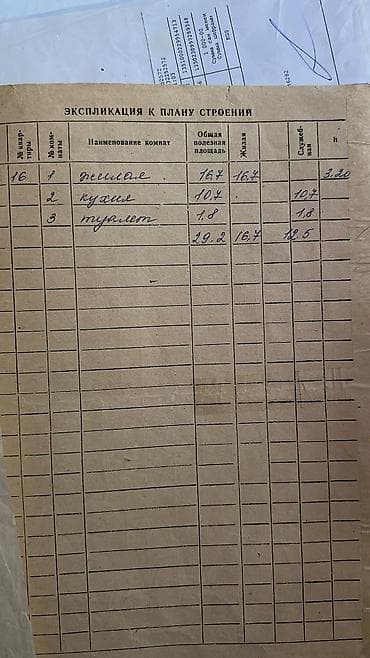 ЭКСПЛИКАЦИЯ К ПЛАНУ СТРОЕНИЙ
№ квар-тиры № ком-наты Наименование комнат Общая полезная площадь Жилая Служеб-ная h
16 1 жилая 16,7 16,7 3.20
2 кухня 10,7 10,7
3 туалет 1,8 1,8
29.2 16,7 12.5